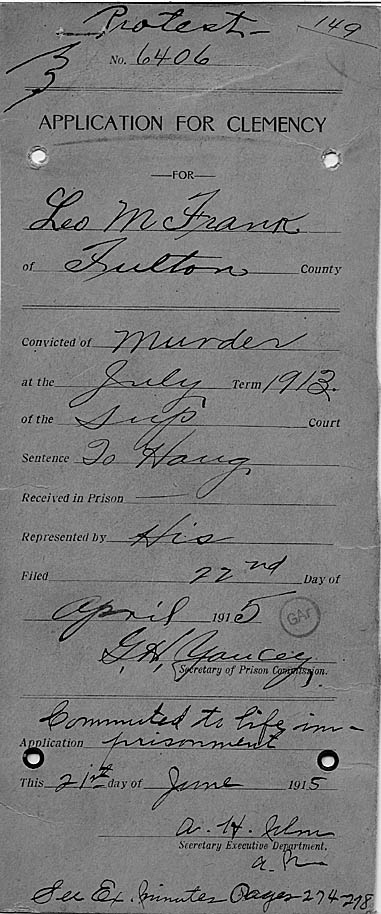 Protest
149
No. 6406
APPLICATION FOR CLEMENCY
—FOR—
Leo M Frank
of Fulton County
Convicted of Murder
at the July Term 1913.
of the Sup Court
Sentence To Hang
Received in Prison —
Represented by His
Filed 22nd Day of
April 1915
GAr
G. H. Yancey,
Secretary of Prison Commission.
Commuted to life im-
Application prisonment
This 21st day of June 1915
a. H.
Secretary Executive Department.
See Ex. minutes Pages 274-278